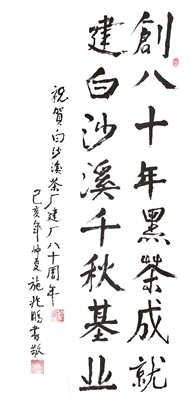 創八十年黑茶成就
建白沙溪千秋基业
祝贺白沙溪茶厂建厂八十周年
己亥年仲夏施兆鹏书敬